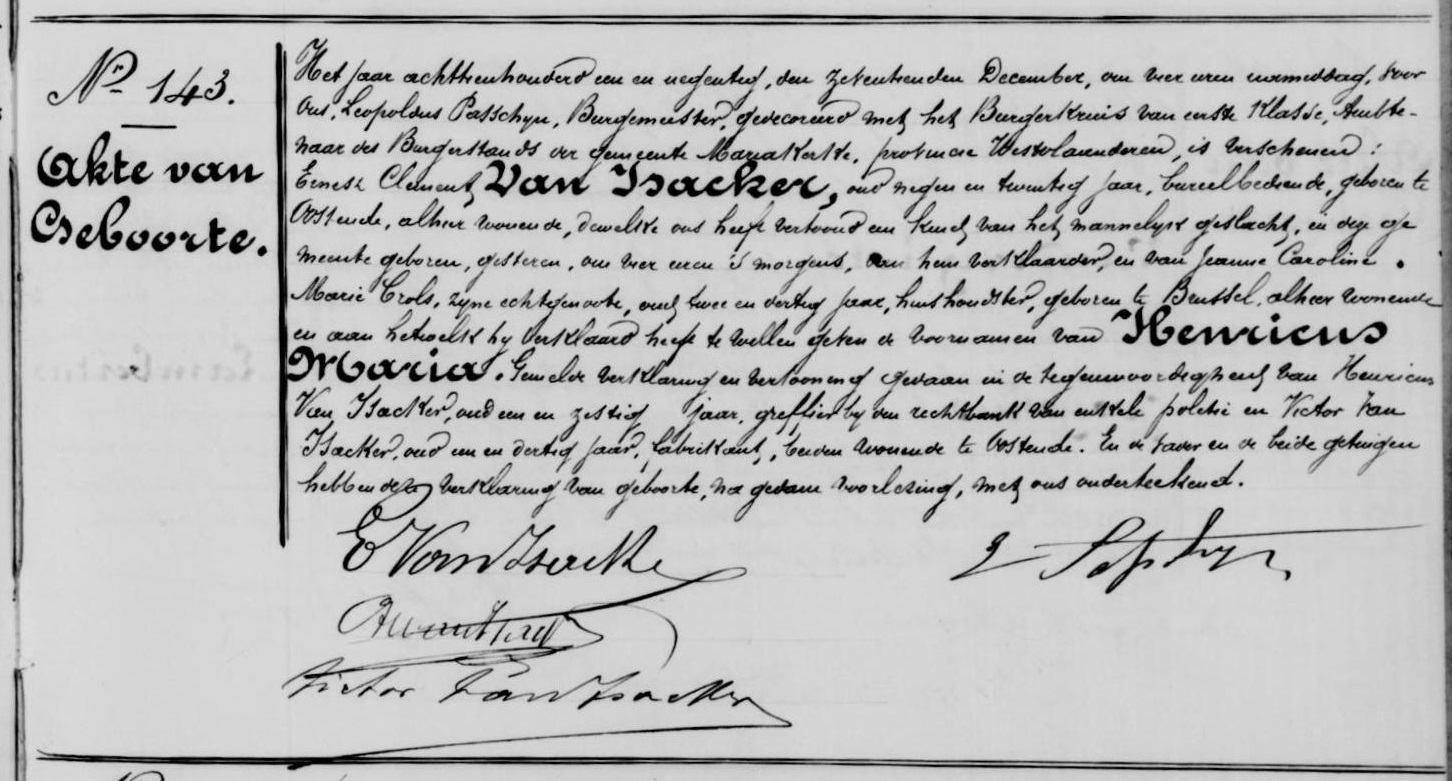 Nr 143.
Akte van
Geboorte.
Het jaar achttienhonderd een en negentig, den zeventienden December, om vier uren namiddag, voor
Ons, Leopoldus Passchyn, Burgemeester, gedecoreerd met het Burgerkruis van eerste Klasse, Ambte-
naar des Burgerstands der gemeente Mariakerke, provincie Westvlaanderen, is verschenen :
Ernest Clement Van Isacker, oud negen en twentig jaar, bureelbediende, geboren te
Oostende, alhier wonende, dewelke ons heeft vertoond een kind van het mannelyk geslacht, in deze ge
meente geboren, gisteren, om vier uren 's morgens, van hem verklaarder, en van Jeanne Caroline
Marie Crols, zyne echtgenoote, oud twee en dertig jaar, huishoudster, geboren te Brussel, alhier wonende
en aan hetwelk hy verklaard heeft te willen geven de voornamen van Henricus
Maria. Gemelde verklaring en vertooning gedaan in de tegenwoordigheid van Henricus
Van Isacker, oud een en zestig jaar, greffier by den rechtbank van enkele politie en Victor Van
Isacker, oud een en dertig jaar, fabrikant, beiden wonende te Oostende. En de vader en de beide getuigen
hebben deze verklaring van geboorte, na gedane voorlezing, met ons onderteekend.
E Van Isacker
Victor Van Isacker